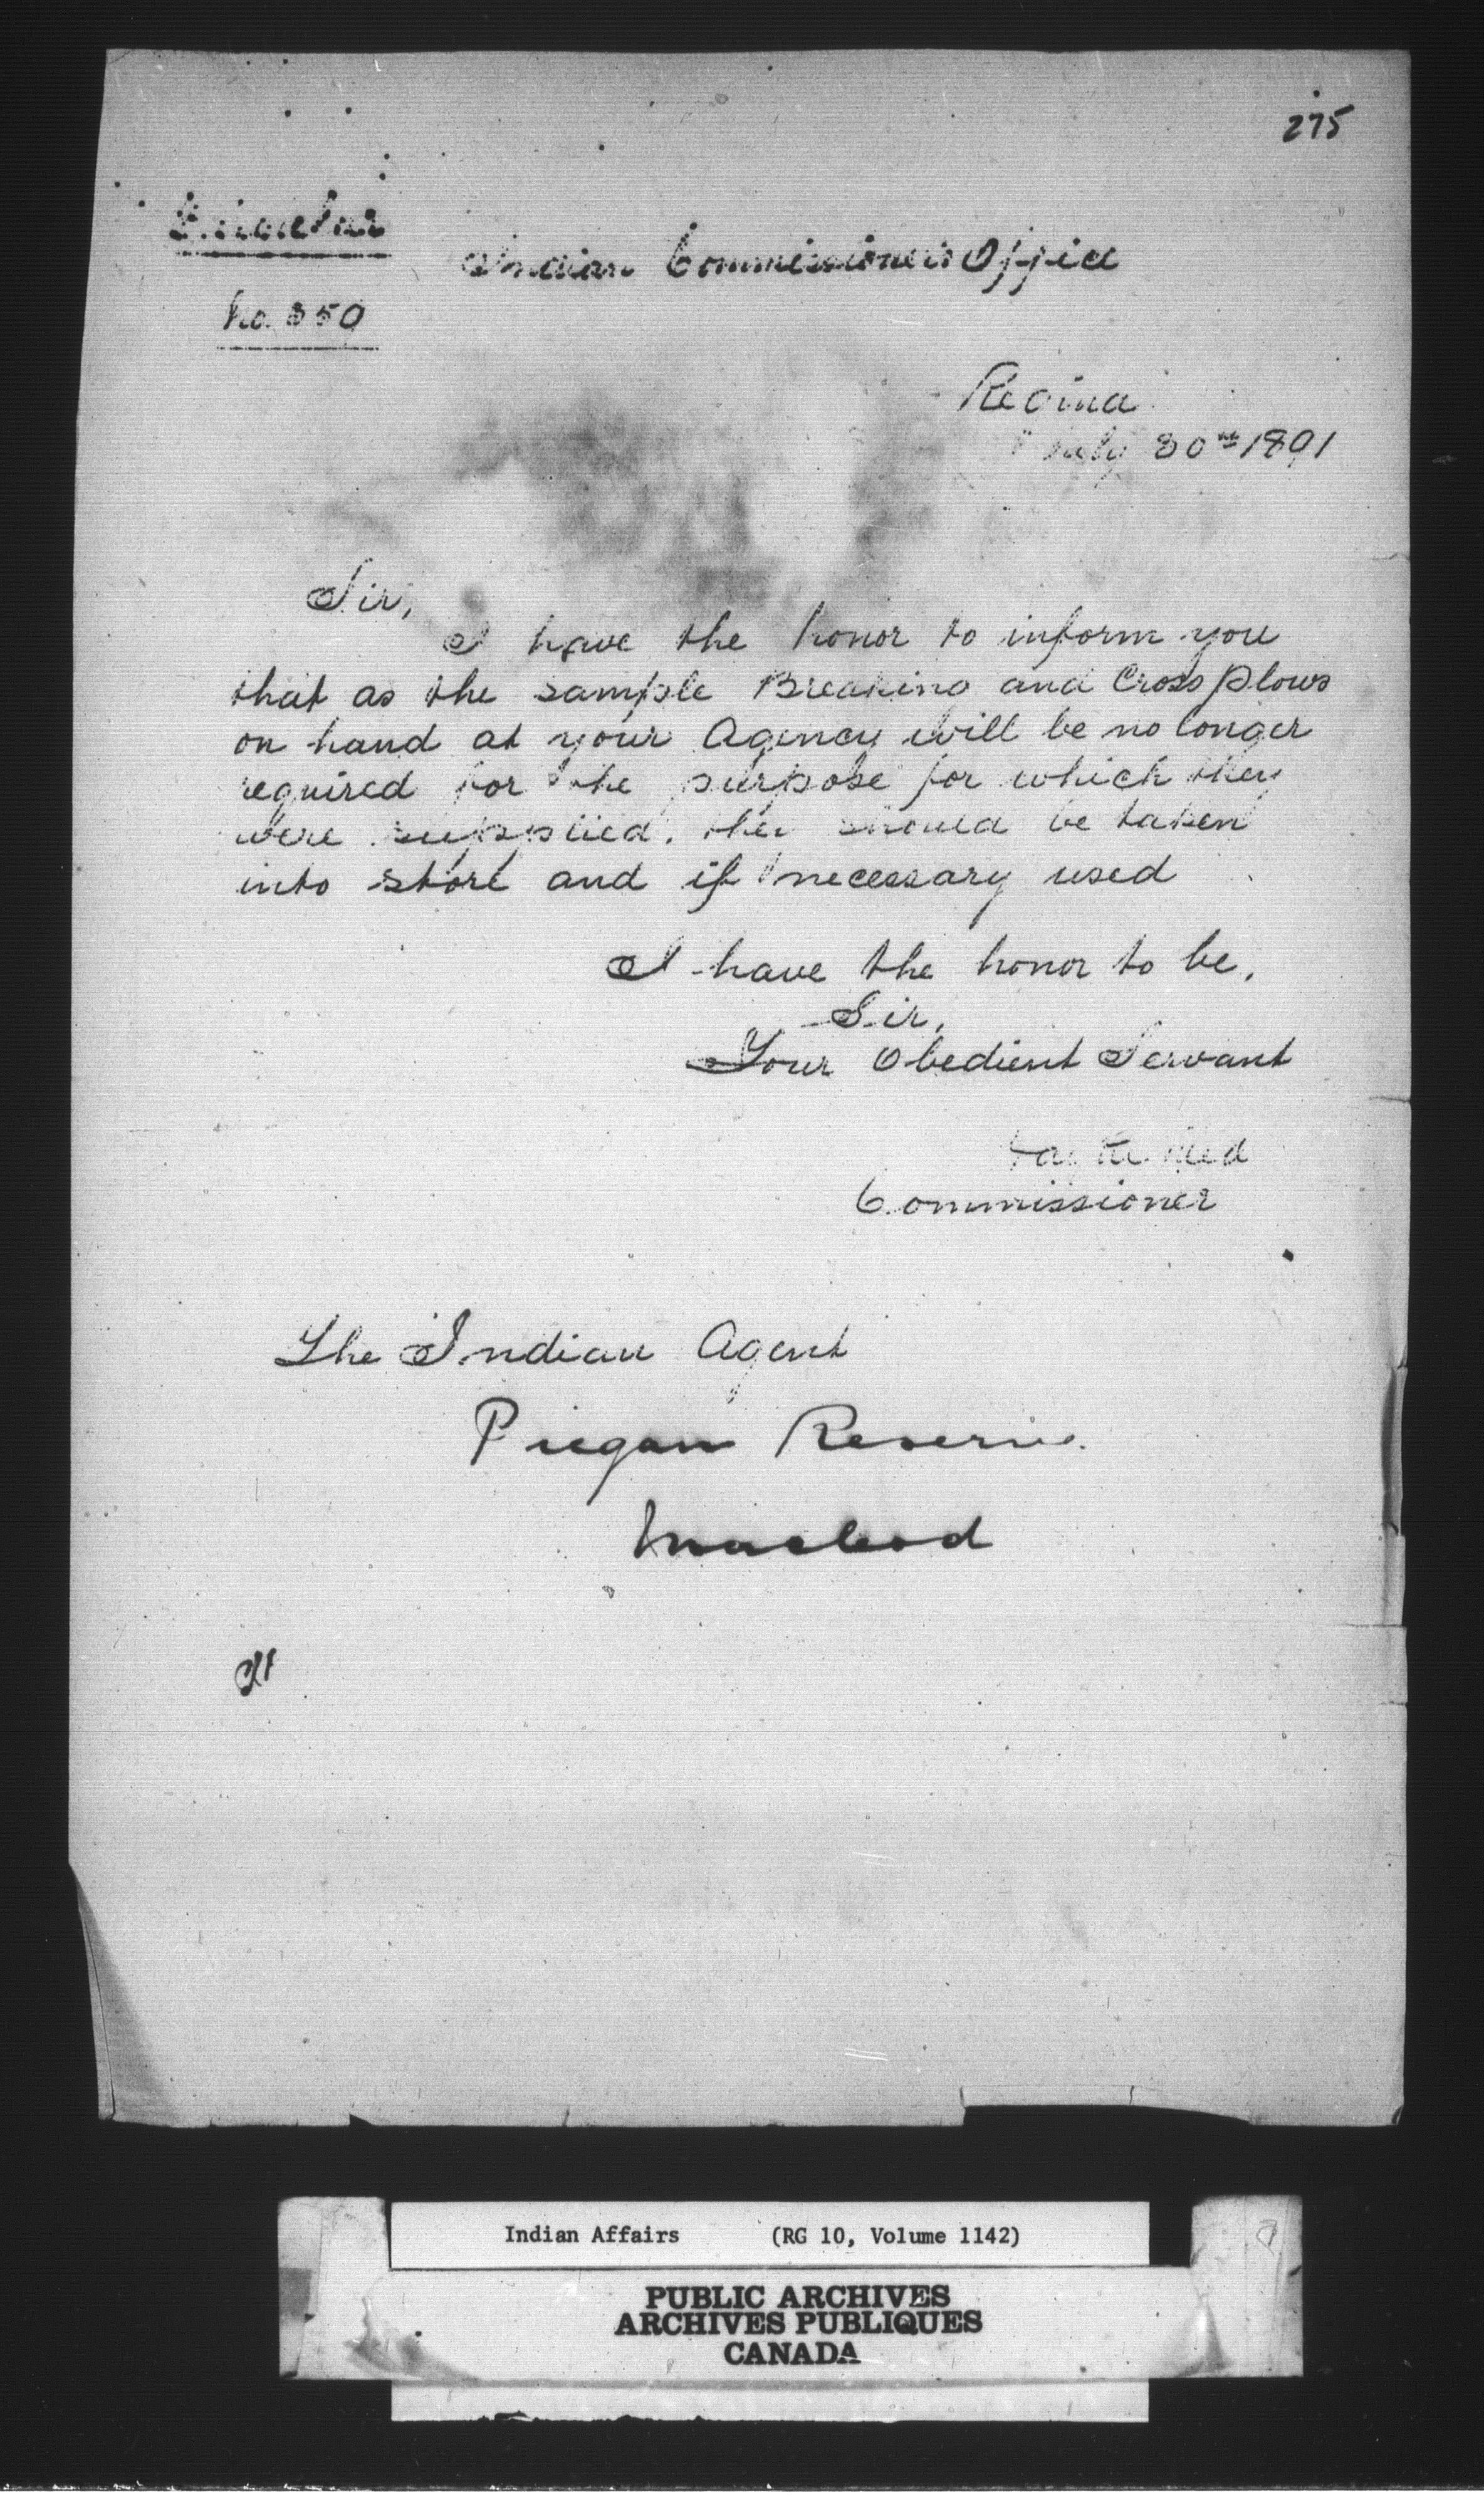 275
Indian Commissioner's Office
No. 350
Regina
July 30th 1891
Sir,
I have the honor to inform you
that as the sample Breaking and Cross plows
on hand at your Agency will be no longer
required for the purpose for which they
were supplied, they should be taken
into store and if necessary used
I have the honor to be,
Sir,
Your Obedient Servant
Commissioner
The Indian Agent
Piegan Reserve
Macleod
Indian Affairs (RG 10, Volume 1142)
PUBLIC ARCHIVES
ARCHIVES PUBLIQUES
CANADA